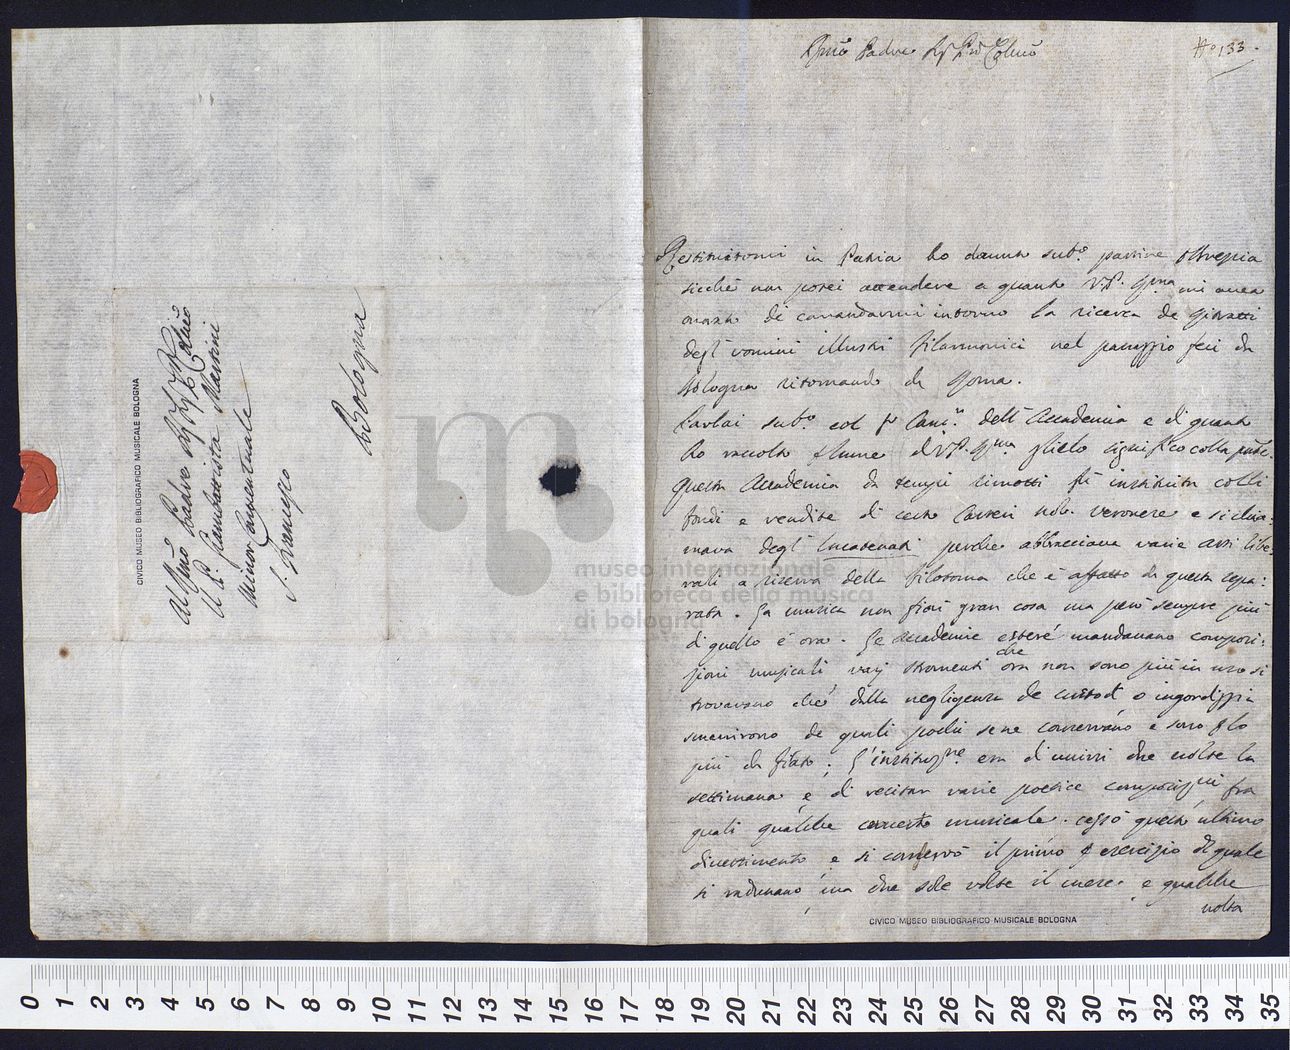 Al Rmo Padre
Il P. Giambattista Martini
Minor Conventuale
S. Francesco
Bologna
CIVICO MUSEO BIBLIOGRAFICO MUSICALE BOLOGNA
Rmo Padre Colmo
No 133.
Restituitomi in Patria ho dovuto subo partire
sicché non potei attendere a quanto V.P. Rma mi avea
onorato di comandarmi intorno la ricerca de
degl'uomini illustri filarmonici nel passaggio feci da
Bologna ritornando da Roma.
Parlai subo col Sr Canc. dell'Accademia e di quanto
ho raccolto V.P. Rma colla
Questa Accademia da tempi rimotti fu instituita colli
fondi e rendite di certo nob. veronese e si chia:
mava degl' Incatenati perché abbracciava varie arti libe:
rali a riserva della filosofia che è affatto da questa sepa:
rata. La musica non fiorì gran cosa ma però sempre più
di quello è ora. Le accademie estere mandavano composi:
zioni musicali, varj stromenti che ora non sono più in uso si
trovavano che dalla negligenza de custodi o ingordiggia
smarirono de quali pochi se ne conservano e sono
più da fiato. L'instituzne era d'unirsi due volte la
settimana e di recitar varie poetice composizzni fra
quali qualche concerto musicale. cessò questo ultimo
divertimento e si conservò il primo esercizio di quale
si radunano ma due sole volte il mese e qualche
volta
CIVICO MUSEO BIBLIOGRAFICO MUSICALE BOLOGNA
museo internazionale
e biblioteca della musica
di bologna
0 1 2 3 4 5 6 7 8 9 10 11 12 13 14 15 16 17 18 19 20 21 22 23 24 25 26 27 28 29 30 31 32 33 34 35